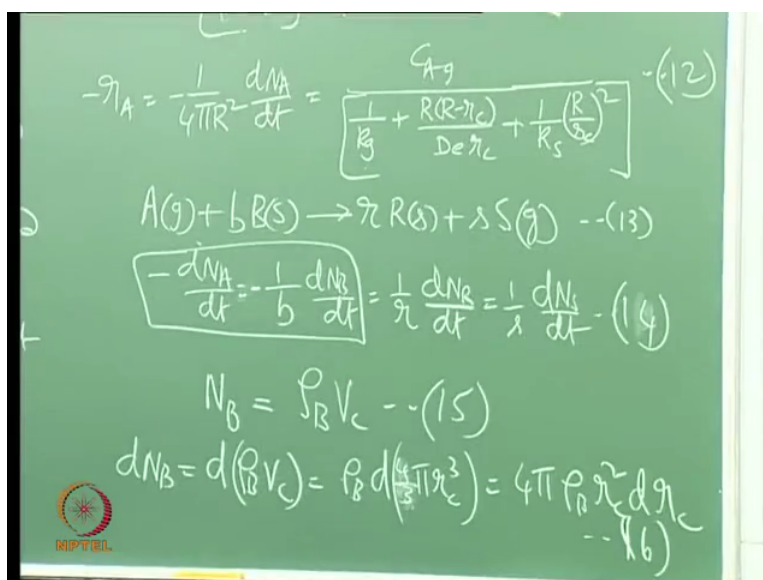 -r_A = -1/(4πR²) dN_A/dt = C_Ag / [1/kg + R(R-r_c)/(De r_c) + 1/k_s (R/r_c)²] --(12)
A(g) + bB(s) → r R(s) + s S(g) --(13)
-dN_A/dt = -1/b dN_B/dt = 1/r dN_R/dt = 1/s dN_s/dt -(14)
N_B = ρ_B V_c --(15)
dN_B = d(ρ_B V_c) = ρ_B d(4/3 π r_c³) = 4π ρ_B r_c² dr_c
--(16)
NPTEL